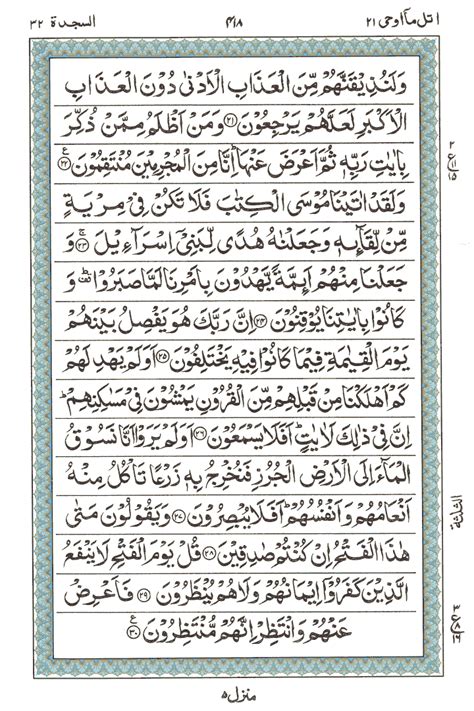 اتل ما اوحی ۲۱ ۴۱۸ السجدة ۳۲
وَلَنُذِيْقَنَّهُمْ مِّنَ الْعَذَابِ الْاَدْنٰى دُوْنَ الْعَذَابِ
الْاَكْبَرِ لَعَلَّهُمْ يَرْجِعُوْنَ ﴿۲۱﴾ وَمَنْ اَظْلَمُ مِمَّنْ ذُكِّرَ
بِاٰيٰتِ رَبِّهٖ ثُمَّ اَعْرَضَ عَنْهَا ؕ اِنَّا مِنَ الْمُجْرِمِيْنَ مُنْتَقِمُوْنَ ﴿۲۲﴾ ع
وَلَقَدْ اٰتَيْنَا مُوْسَى الْكِتٰبَ فَلَا تَكُنْ فِيْ مِرْيَةٍ
مِّنْ لِّقَآئِهٖ وَجَعَلْنٰهُ هُدًى لِّبَنِيْۤ اِسْرَآءِيْلَ ﴿۲۳﴾ وَ
جَعَلْنَا مِنْهُمْ اَئِمَّةً يَّهْدُوْنَ بِاَمْرِنَا لَمَّا صَبَرُوْا ؕ وَ
كَانُوْا بِاٰيٰتِنَا يُوْقِنُوْنَ ﴿۲۴﴾ اِنَّ رَبَّكَ هُوَ يَفْصِلُ بَيْنَهُمْ
يَوْمَ الْقِيٰمَةِ فِيْمَا كَانُوْا فِيْهِ يَخْتَلِفُوْنَ ﴿۲۵﴾ اَوَلَمْ يَهْدِ لَهُمْ
كَمْ اَهْلَكْنَا مِنْ قَبْلِهِمْ مِّنَ الْقُرُوْنِ يَمْشُوْنَ فِيْ مَسٰكِنِهِمْ ؕ
اِنَّ فِيْ ذٰلِكَ لَاٰيٰتٍ ؕ اَفَلَا يَسْمَعُوْنَ ﴿۲۶﴾ اَوَلَمْ يَرَوْا اَنَّا نَسُوْقُ
الْمَآءَ اِلَى الْاَرْضِ الْجُرُزِ فَنُخْرِجُ بِهٖ زَرْعًا تَاْكُلُ مِنْهُ
اَنْعَامُهُمْ وَاَنْفُسُهُمْ ؕ اَفَلَا يُبْصِرُوْنَ ﴿۲۷﴾ وَيَقُوْلُوْنَ مَتٰى
هٰذَا الْفَتْحُ اِنْ كُنْتُمْ صٰدِقِيْنَ ﴿۲۸﴾ قُلْ يَوْمَ الْفَتْحِ لَا يَنْفَعُ
الَّذِيْنَ كَفَرُوْۤا اِيْمَانُهُمْ وَلَا هُمْ يُنْظَرُوْنَ ﴿۲۹﴾ فَاَعْرِضْ
عَنْهُمْ وَانْتَظِرْ اِنَّهُمْ مُّنْتَظِرُوْنَ ﴿۳۰﴾ ع
الثلثة
منزل ۵